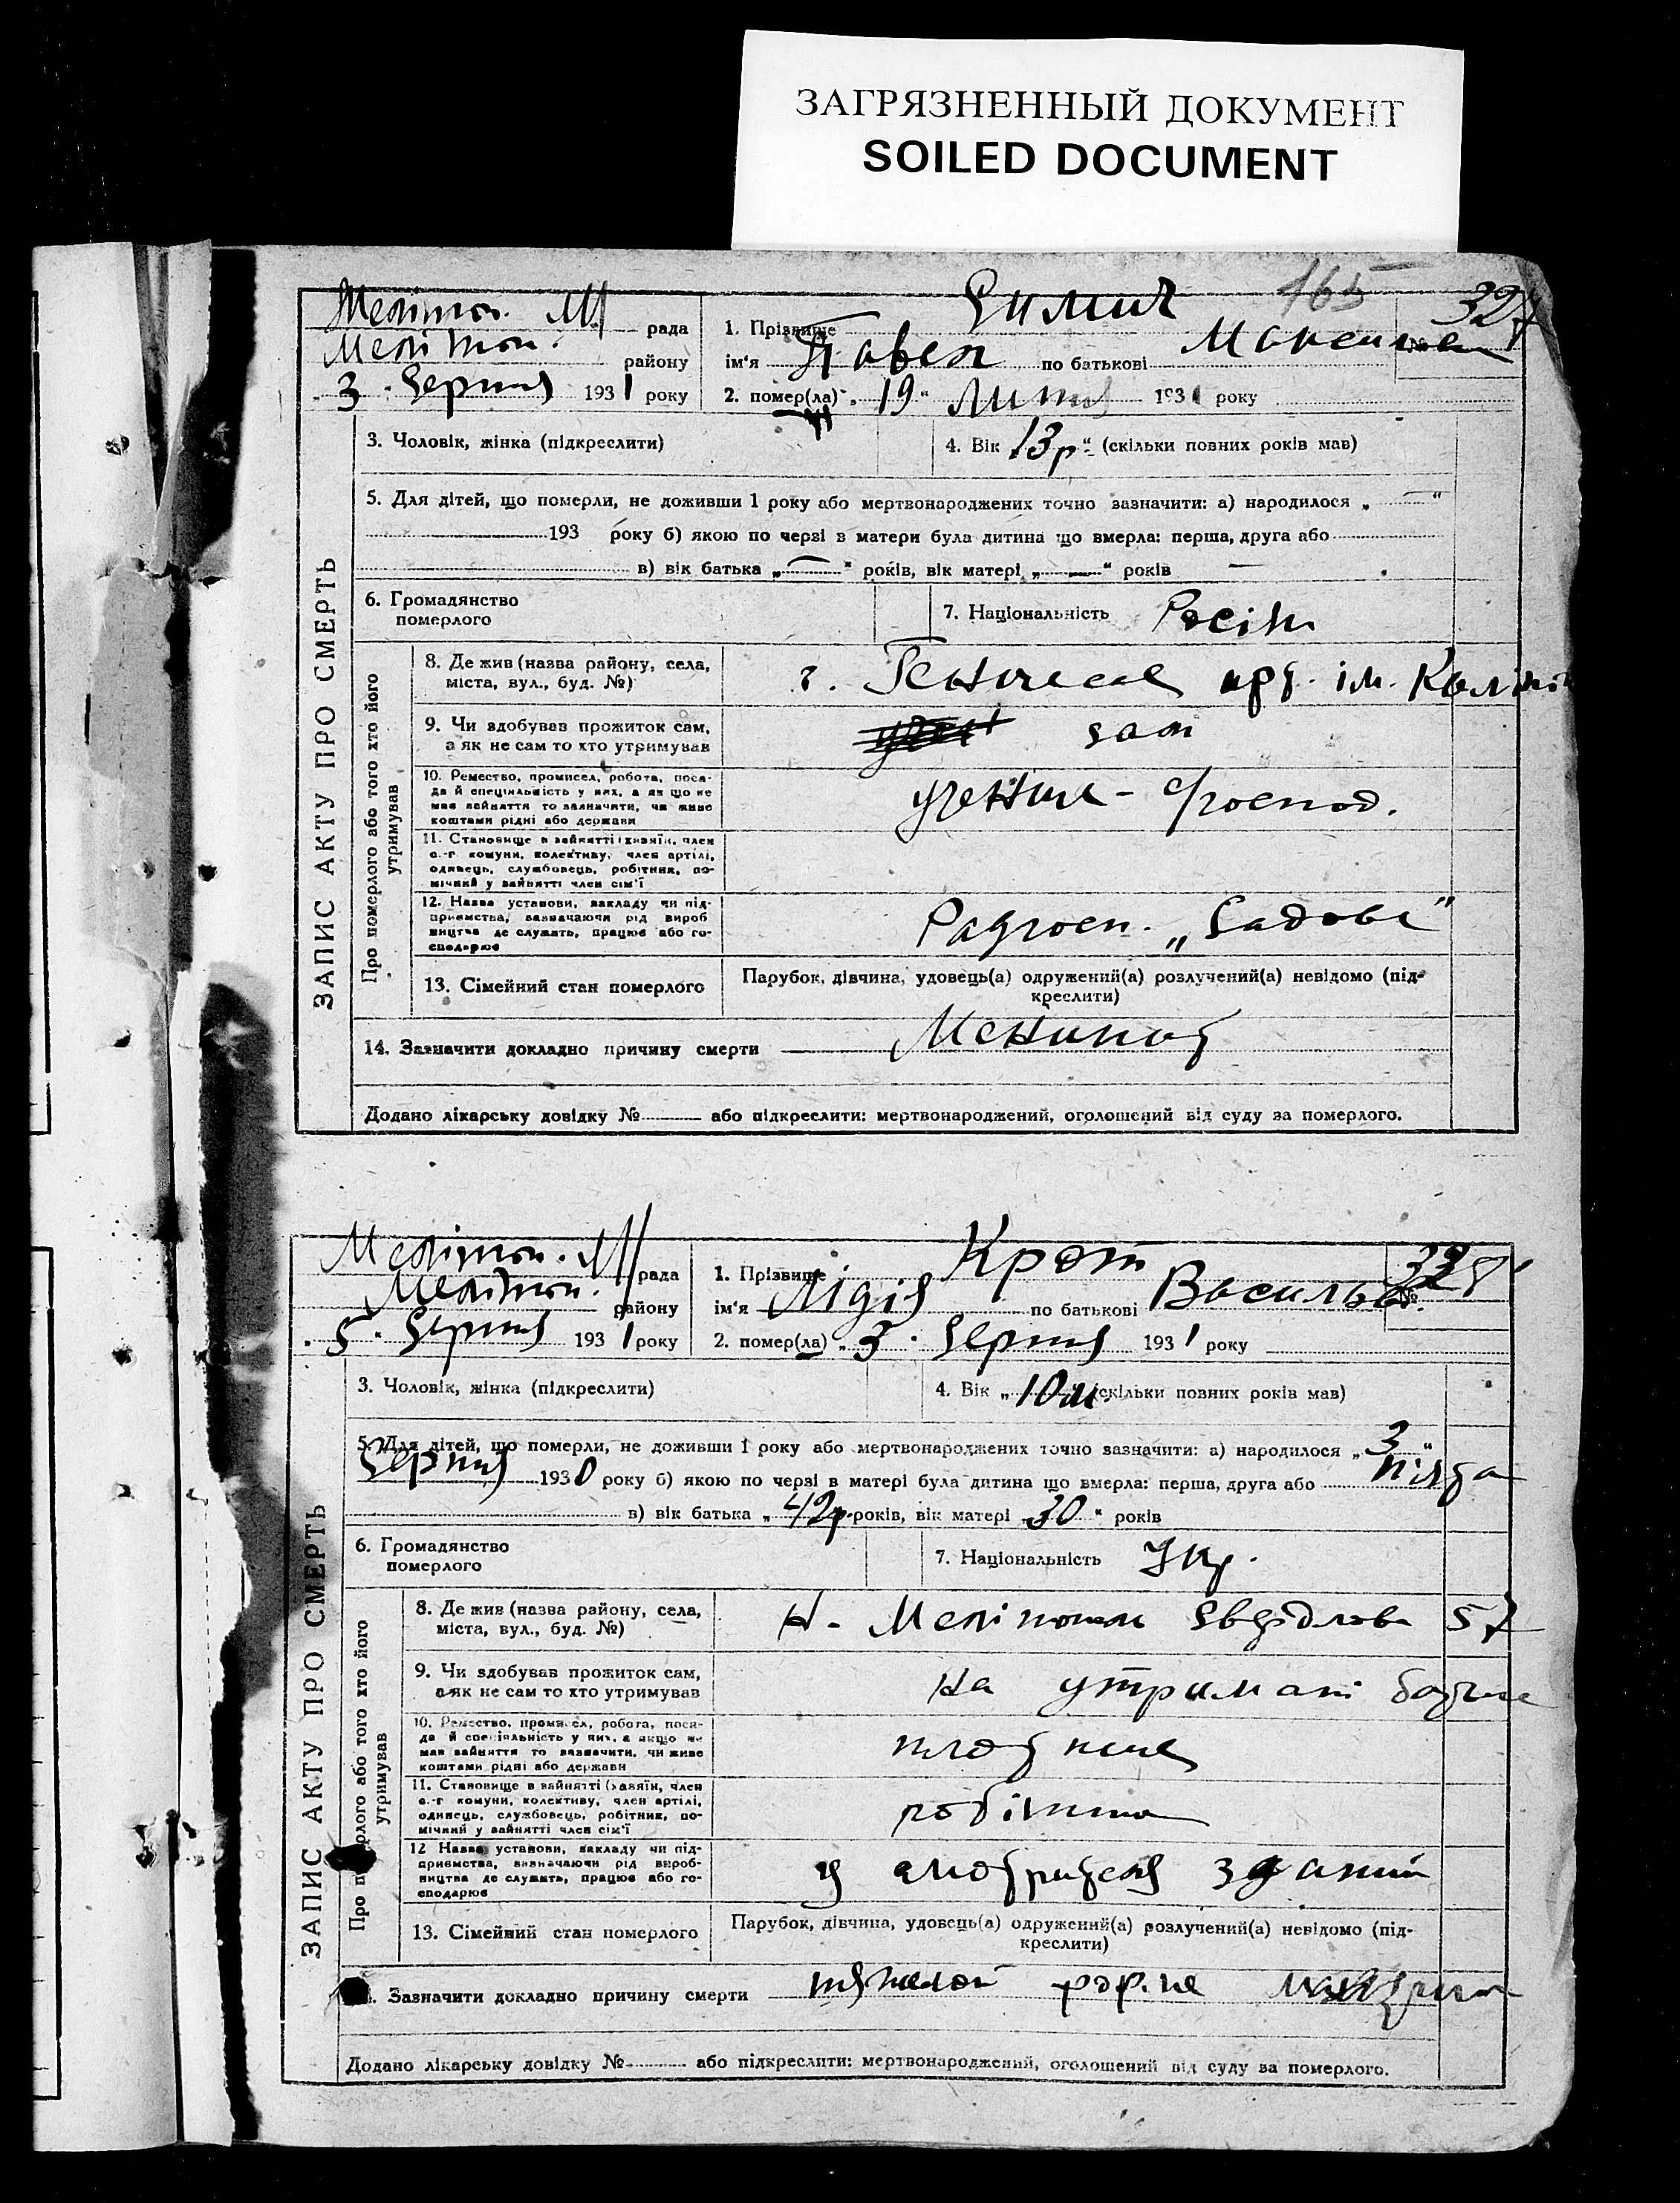 ЗАГРЯЗНЕННЫЙ ДОКУМЕНТ
SOILED DOCUMENT
165
327
Меліт. рада
Меліт. району
3 Серпня 1931 року
1. Прізвище
ім'я Павел по батькові Максим
2. помер(ла) „19" Лют 1931 року
ЗАПИС АКТУ ПРО СМЕРТЬ
3. Чоловік, жінка (підкреслити)
4. Вік „13р" (скільки повних років мав)
5. Для дітей, що померли, не доживши 1 року або мертвонароджених точно зазначити: а) народилося „—"
193 року б) якою по черзі в матери була дитина що вмерла: перша, друга або
в) вік батька „—" років, вік матері „—" років —
6. Громадянство
померлого
7. Національність Росіян
Про померлого або того хто його
утримував
8. Де жив (назва району, села,
міста, вул., буд. №)
арт. ім. Калініна
9. Чи здобував прожиток сам,
а як не сам то хто утримував
сам
10. Ремество, промисел, робота, поса-
да й спеціяльність у них, а як що не
мав зайняття то зазначити, чи живе
коштами рідні або держави
11. Становище в зайнятті (хазяїн, член
с.-г комуни, колективу, член артілі,
одинець, службовець, робітник, по-
мічний у зайнятті член сім'ї
12. Назва установи, закладу чи під-
приємства, зазначаючи рід вироб
ництва де служить, працює або го-
сподарює
Радгосп. „Садове"
13. Сімейний стан померлого
Парубок, дівчина, удовець(а) одружений(а) розлучений(а) невідомо (під-
креслити)
14. Зазначити докладно причину смерти
Додано лікарську довідку № або підкреслити: мертвонароджений, оголошений від суду за померлого.
328
Меліт. рада
Меліт. району
5 Серпня 1931 року
1. Прізвище Крот
ім'я Лідія по батькові Васильев.
2. помер(ла) „3" Серпня 1931 року
ЗАПИС АКТУ ПРО СМЕРТЬ
3. Чоловік, жінка (підкреслити)
4. Вік „10м. (скільки повних років мав)
5. Для дітей, що померли, не доживши 1 року або мертвонароджених точно зазначити: а) народилося „3"
Серпня 1930 року б) якою по черзі в матері була дитина що вмерла: перша, друга або п'ята
в) вік батька „42р. років, вік матері „30" років
6. Громадянство
померлого
7. Національність Укр.
Про померлого або того хто його
утримував
8. Де жив (назва району, села,
міста, вул., буд. №)
Мелітополь Свердлова 57
9. Чи здобував прожиток сам,
а як не сам то хто утримував
на утримані батька
10. Ремество, промисел, робота, поса-
да й спеціяльність у них, а якщо не
мав зайняття то зазначити, чи живе
коштами рідні або держави
11. Становище в зайнятті (хазяїн, член
с.-г комуни, колективу, член артілі,
одинець, службовець, робітник, по-
мічний у зайнятті член сім'ї
робітник
12 Назва установи, закладу чи під-
приємства, зазначаючи рід вироб-
ництва де служить, працює або го-
сподарює
13. Сімейний стан померлого
Парубок, дівчина, удовець(а) одружений(а) розлучений(а) невідомо (під-
креслити)
Зазначити докладно причину смерти
Додано лікарську довідку № або підкреслити: мертвонароджений, оголошений від суду за померлого.